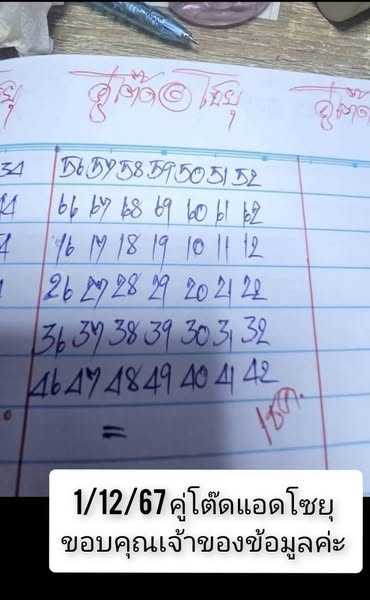 คู่โต๊ด ๕ โซยุ
34 56 57 58 59 50 51 52
66 67 68 69 60 61 62
16 17 18 19 10 11 12
26 27 28 29 20 21 22
36 37 38 39 30 31 32
46 47 48 49 40 41 42
=
1/12/67 คู่โต๊ดแอดโซยุ
ขอบคุณเจ้าของข้อมูลค่ะ